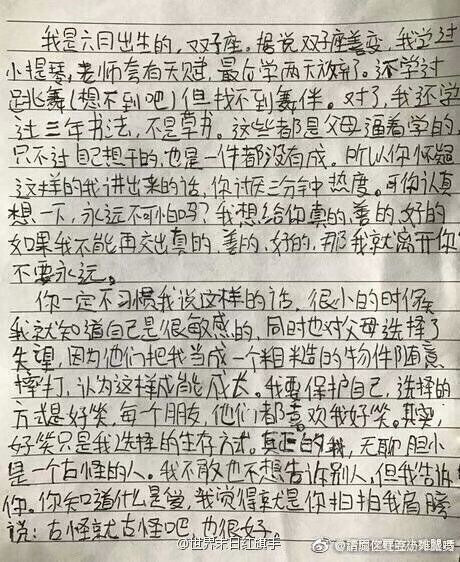 我是六月出生的,双子座。据说双子座善变,我学过
小提琴,老师夸有天赋,最后学两天放弃了。还学过
跳舞(想不到吧)但找不到舞伴。对了,我还学
过三年书法,不是草书。这些都是父母逼着学的,
只不过自己想干的,也是一件都没有成。所以你怀疑
这样的我讲出来的话,你讨厌三分钟热度。可你认真
想一下,永远不可怕吗?我想给你真的,善的,好的
如果我不能再交出真的,善的,好的,那我就离开你
不要永远。
你一定不习惯我说这样的话,很小的时候
我就知道自己是很敏感的,同时也对父母选择了
失望,因为他们把我当成一个粗糙的物件随意
摔打,认为这样成能成长。我要保护自己,选择的
方式是好笑,每一个朋友,他们都喜欢我好笑。其实,
好笑只是我选择的生存方式。真正的我,无聊胆小
是一个古怪的人。我不敢也不想告诉别人,但我告诉
你。你知道什么是爱,我觉得就是你拍拍我肩膀
说:古怪就古怪吧,也很好。
@世界末日红旗手